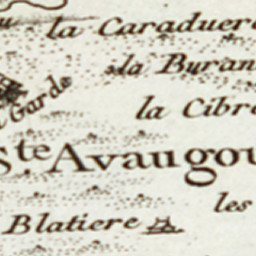 la Caraduer
la Buran
Garde
la Cibr
Ste Avaugou
les
Blatiere